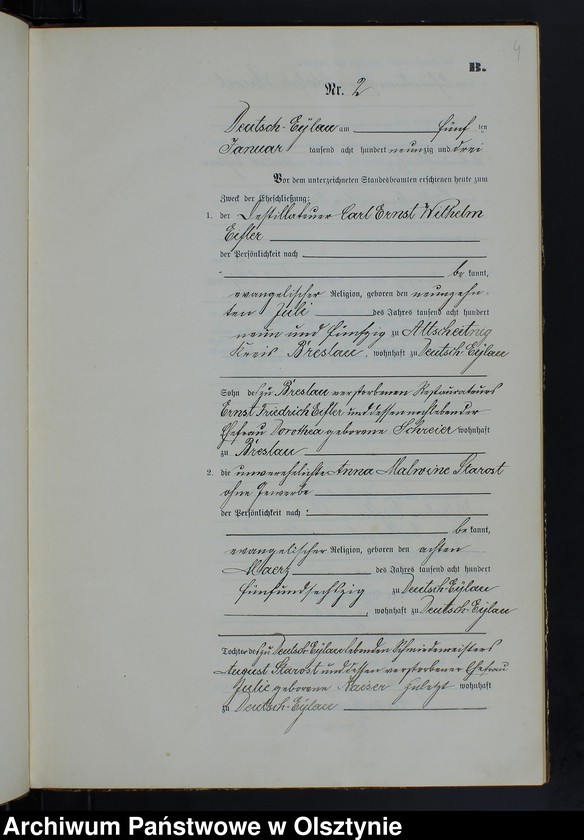 4
B.
Nr. 2
Deutsch-Eylau am fünf ten
Januar tausend acht hundert neunzig und drei
Vor dem unterzeichneten Standesbeamten erschienen heute zum
Zweck der Eheschließung:
1. der Destillateur Carl Ernst Wilhelm
Eifler
der Persönlichkeit nach
be kannt,
evangelischer Religion, geboren den neunzehn-
ten Juli des Jahres tausend acht hundert
neun und fünfzig zu Altscheitnig
Kreis Breslau, wohnhaft zu Deutsch-Eylau
Sohn des zu Breslau verstorbenen Restaurateurs
Ernst Friedrich Eifler und dessen nachlebender
Ehefrau Dorothea geborene Schreier wohnhaft
zu Breslau
2. die unverehelichte Anna Malwine Starost
ohne Gewerbe
der Persönlichkeit nach
be kannt,
evangelischer Religion, geboren den achten
Maerz des Jahres tausend acht hundert
fünfundsechszig zu Deutsch-Eylau
, wohnhaft zu Deutsch-Eylau
Tochter des zu Deutsch-Eylau lebenden Schmiedemeisters
August Starost und dessen verstorbener Ehefrau
Julie geborene Kaiser zuletzt wohnhaft
zu Deutsch-Eylau
Archiwum Państwowe w Olsztynie